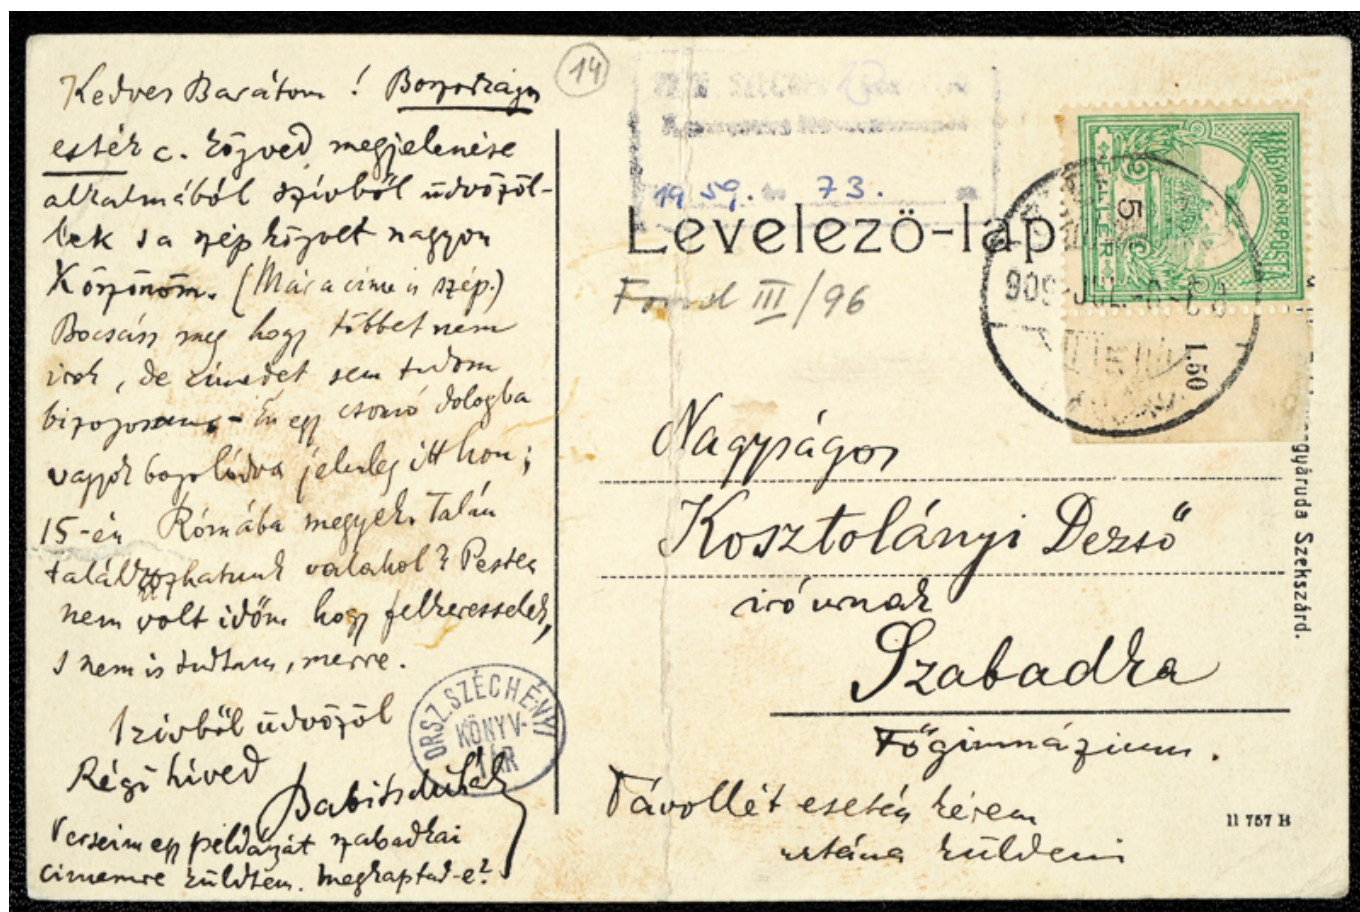 14
Kedves Barátom! Boszorkányos
esték c. könyved megjelenése
alkalmából szívből üdvözöl-
lek s a szép könyvet nagyon
köszönöm. (Már a címe is szép.)
Bocsáss meg hogy többet nem
irok, de címedet sem tudom
bizonyosan - Én egy csomó dologba
vagyok bogozódva jelenleg itthon;
15-én Rómába megyek. Talán
találkozhatunk valahol? Pesten
nem volt időm hogy felkeresselek,
s nem is tudtam, merre.
Szivből üdvözöl
Régi híved
Babits Mihály
Verseim egy példányát szabadkai
címemre küldtem. Megkaptad-e?
ORSZ. SZÉCHÉNYI
KÖNYV-
TÁR
1959. 73.
Levelező-lap
Fond III/96
MAGYAR KIR. POSTA
5
FILLER
909 JUL.
1.50
Nagyságos
Kosztolányi Dezső
író urnak
Szabadka
Főgimnázium.
Távollét esetén kérem
utána küldeni
Szekszárd.
11 757 H